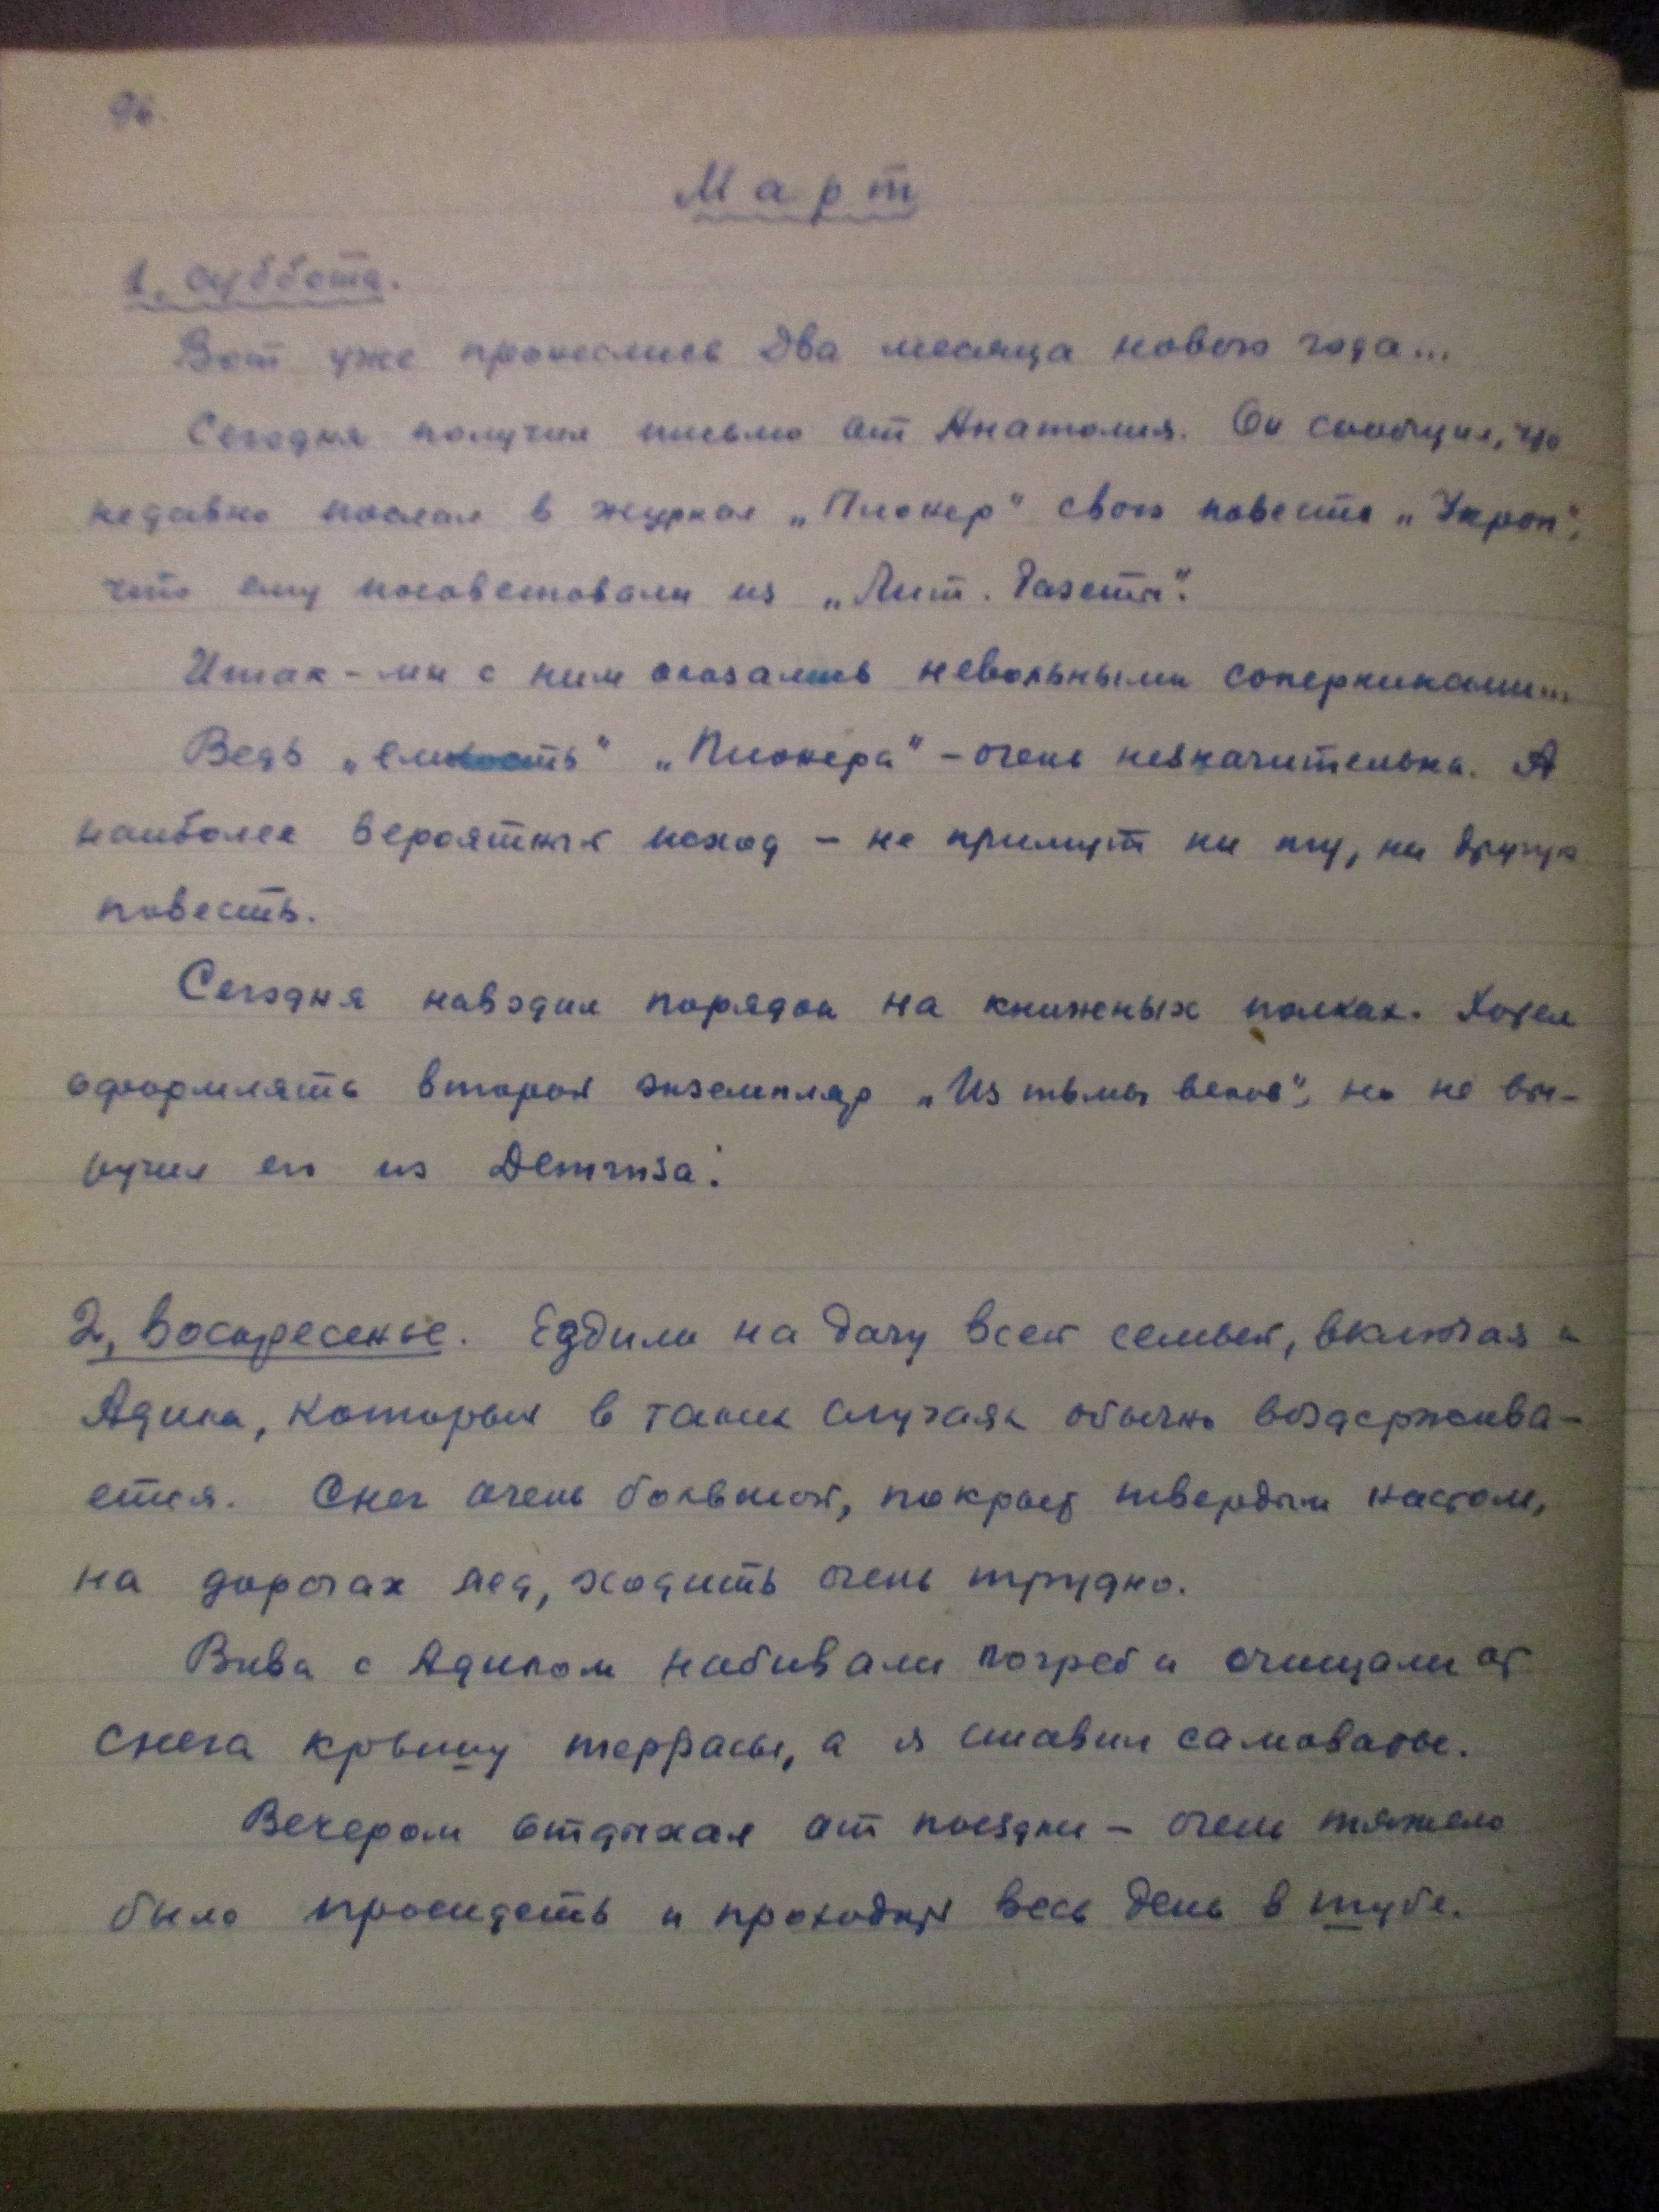 96.
Март
1, суббота.
Вот уже пронеслись два месяца нового года...
Сегодня получил письмо от Анатолия. Он сообщил, что
недавно послал в журнал „Пионер" свою повесть „Укроп",
что ему посоветовали из „Лит. Газеты".
Итак - мы с ним оказались невольными соперниками...
Ведь „емкость" „Пионера" - очень незначительна. А
наиболее вероятный исход - не примут ни ту, ни другую
повесть.
Сегодня наводил порядок на книжных полках. Хотел
оформлять второй экземпляр „Из тьмы веков", но не вы-
ручил его из Детгиза.
2, воскресенье. Ездили на дачу всей семьей, включая и
Адика, который в таких случаях обычно воздержива-
ется. Снег очень большой, покрыт твердым настом,
на дорогах лед, ходить очень трудно.
Вива с Адиком набивали погреб и очищали от
снега крышу террасы, а я ставил самовары.
Вечером отдыхал от поездки - очень тяжело
было просидеть и проходить весь день в шубе.